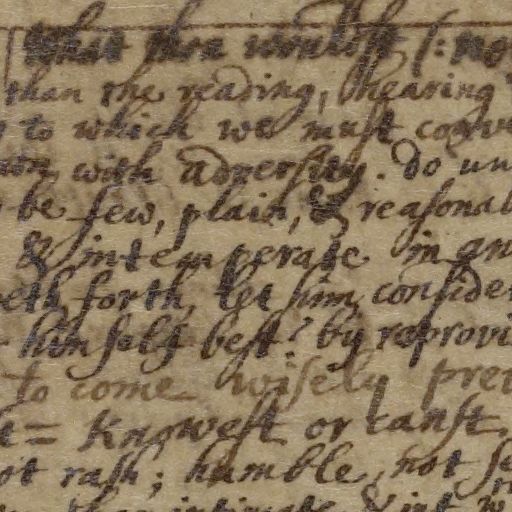 that thou wouldst (: no
than the reading, hearing
to which we must conv
with adversity. do un
be few, plain, & reasonab
& intemperate in an
eth forth, let him consider
himselfe best? by reprovi
to come wisely prev
= knowest or canst,
rash; humble, not se